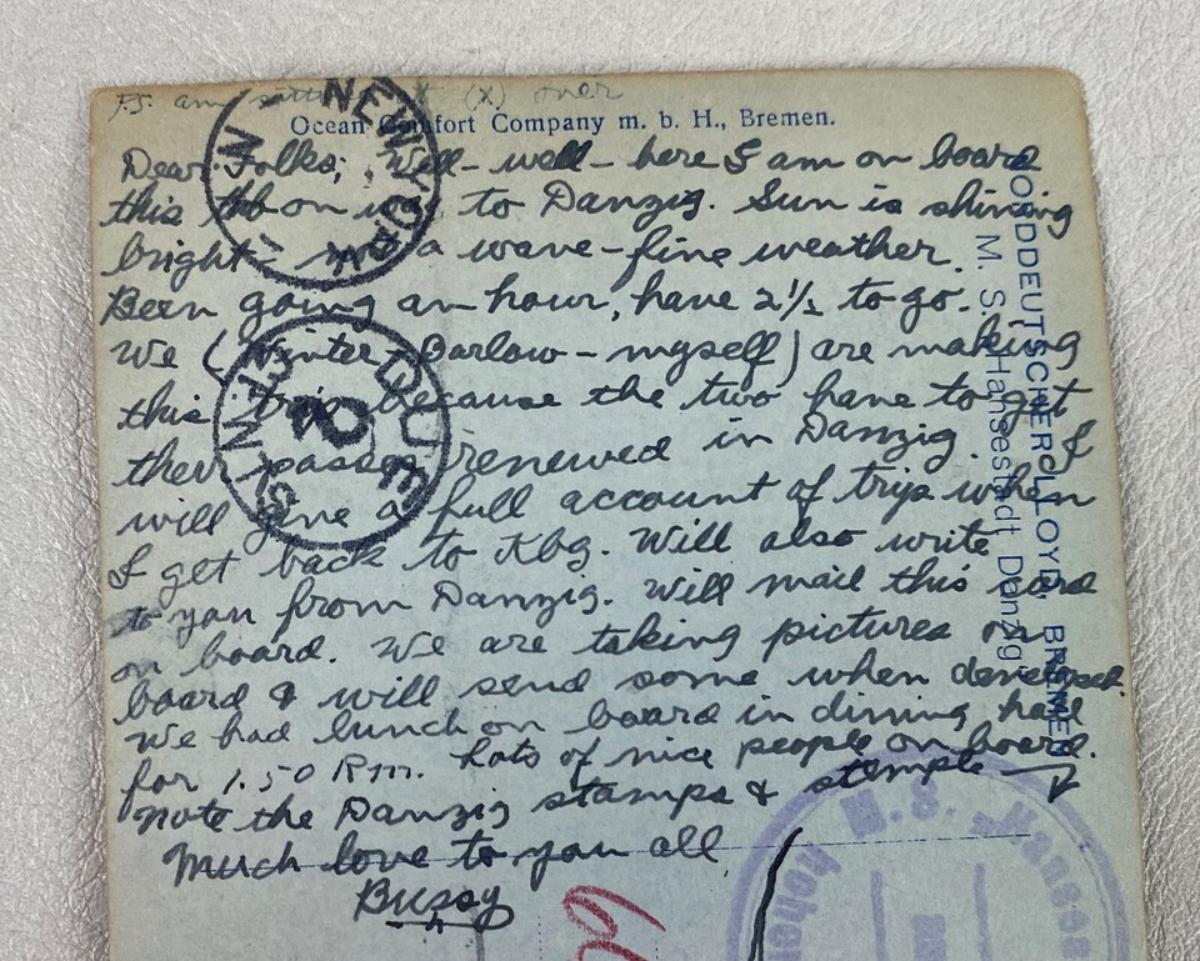 P.S. am (X) over
Ocean Comfort Company m. b. H., Bremen.
Dear Folks; Well- well- here I am on board
this on way to Danzig. Sun is shining
bright- a wave-fine weather.
Been going an hour, have 2½ to go.
We (Winter- Barlow - myself) are making
this trip because the two have to get
their passes renewed in Danzig. I
will give a full account of trip when
I get back to Kbg. Will also write
to you from Danzig. Will mail this card
on board. We are taking pictures on
board & will send some when developed.
We had lunch on board in dining hall
for 1.50 Rm. Lots of nice people on board.
Note the Danzig stamps & stemple →
Much love to you all
Bussy
NEW YORK N.Y.
DUE 2 CENTS
NORDDEUTSCHER LLOYD, BREMEN
M. S. „Hansestadt Danzig"
M.S. „Hanse